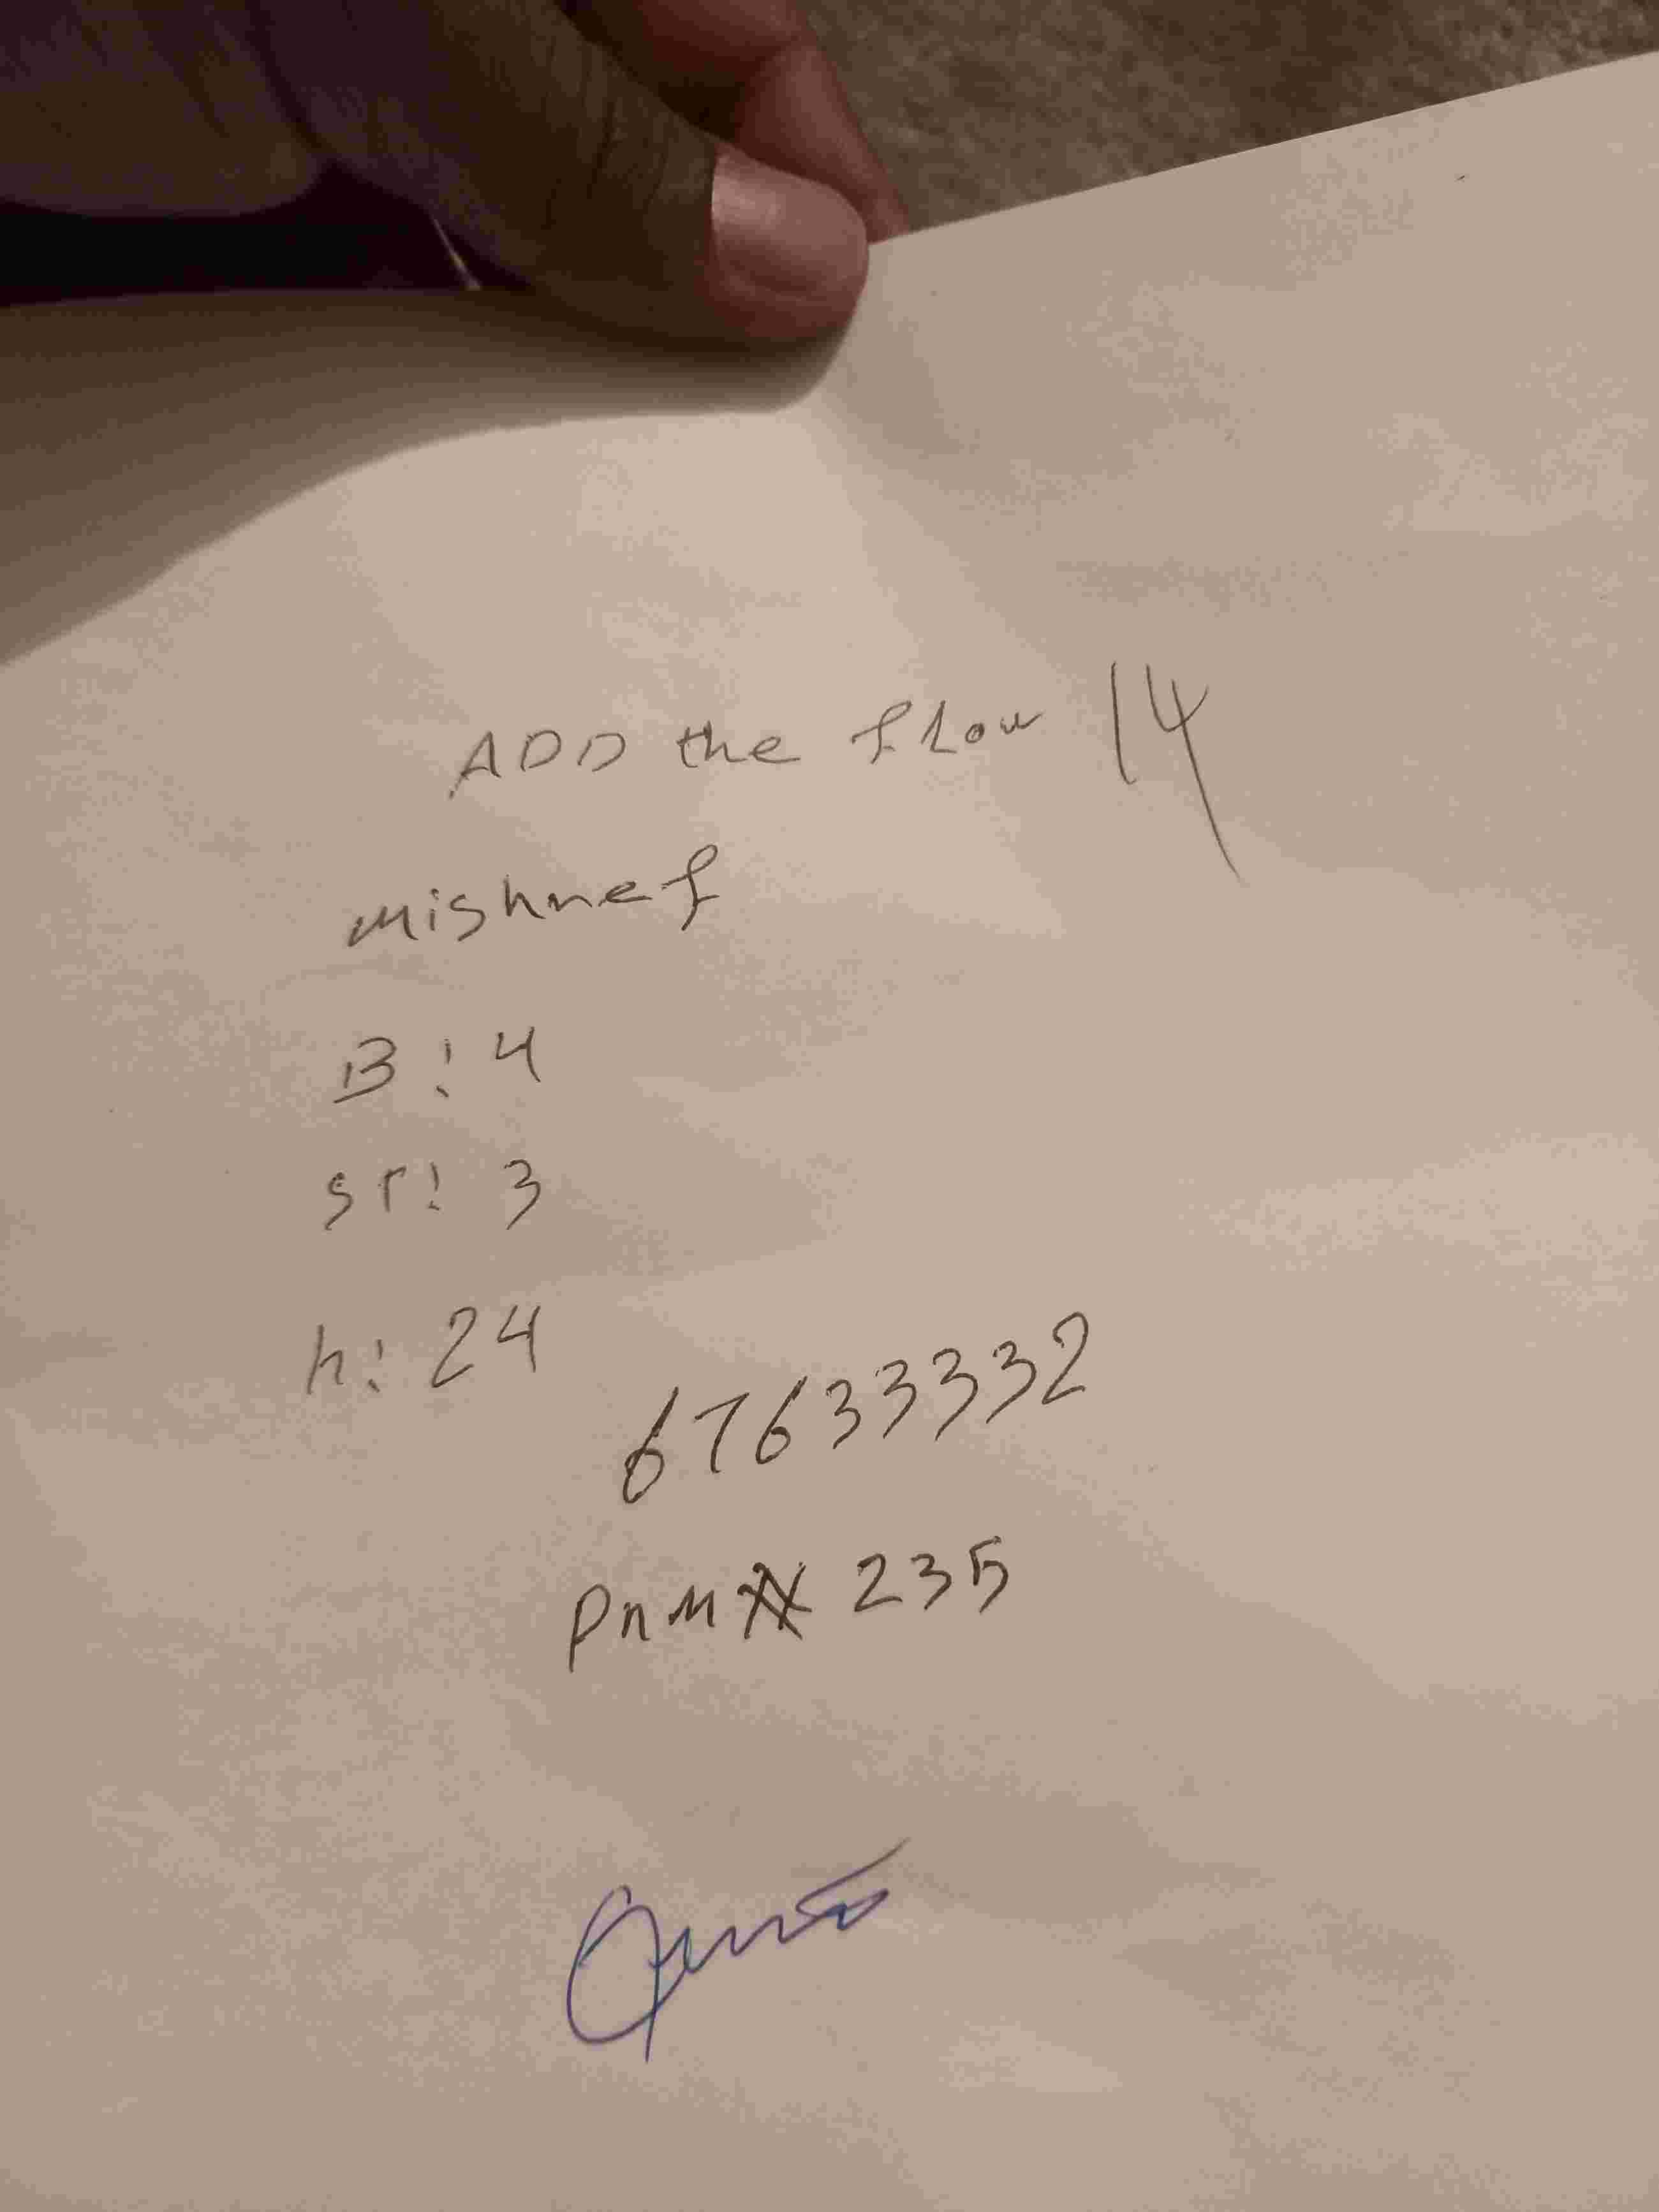 ADD the flow 14
mishnef
B: 4
sr: 3
h: 24
67633332
PnM 235